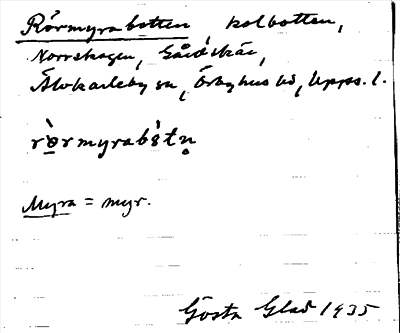 Rörmyrabotten kolbotten,
Norrskogen, Gårdskär,
Älvkarleby sn, Örbyhus hd, Upps. l.
rö̀rmyrabòtn̥
Myra = myr.
Gösta Glad 1935